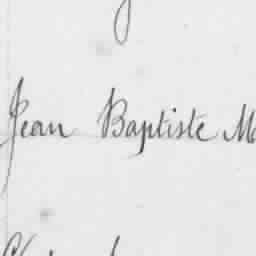 Jean Baptiste M